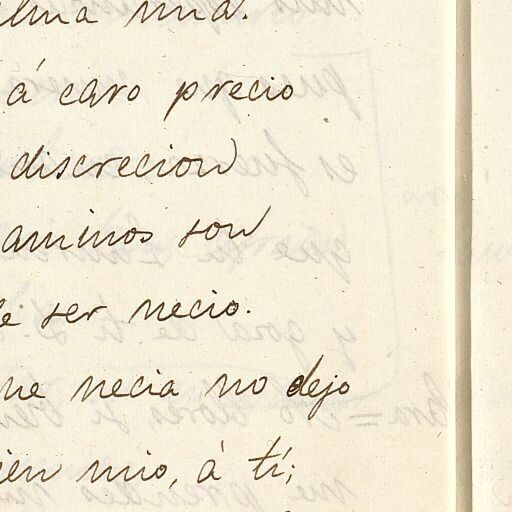 alma mia.
á caro precio
discrecion
aminos son
de ser necio.
me necia no dejo
ien mio, á tí;